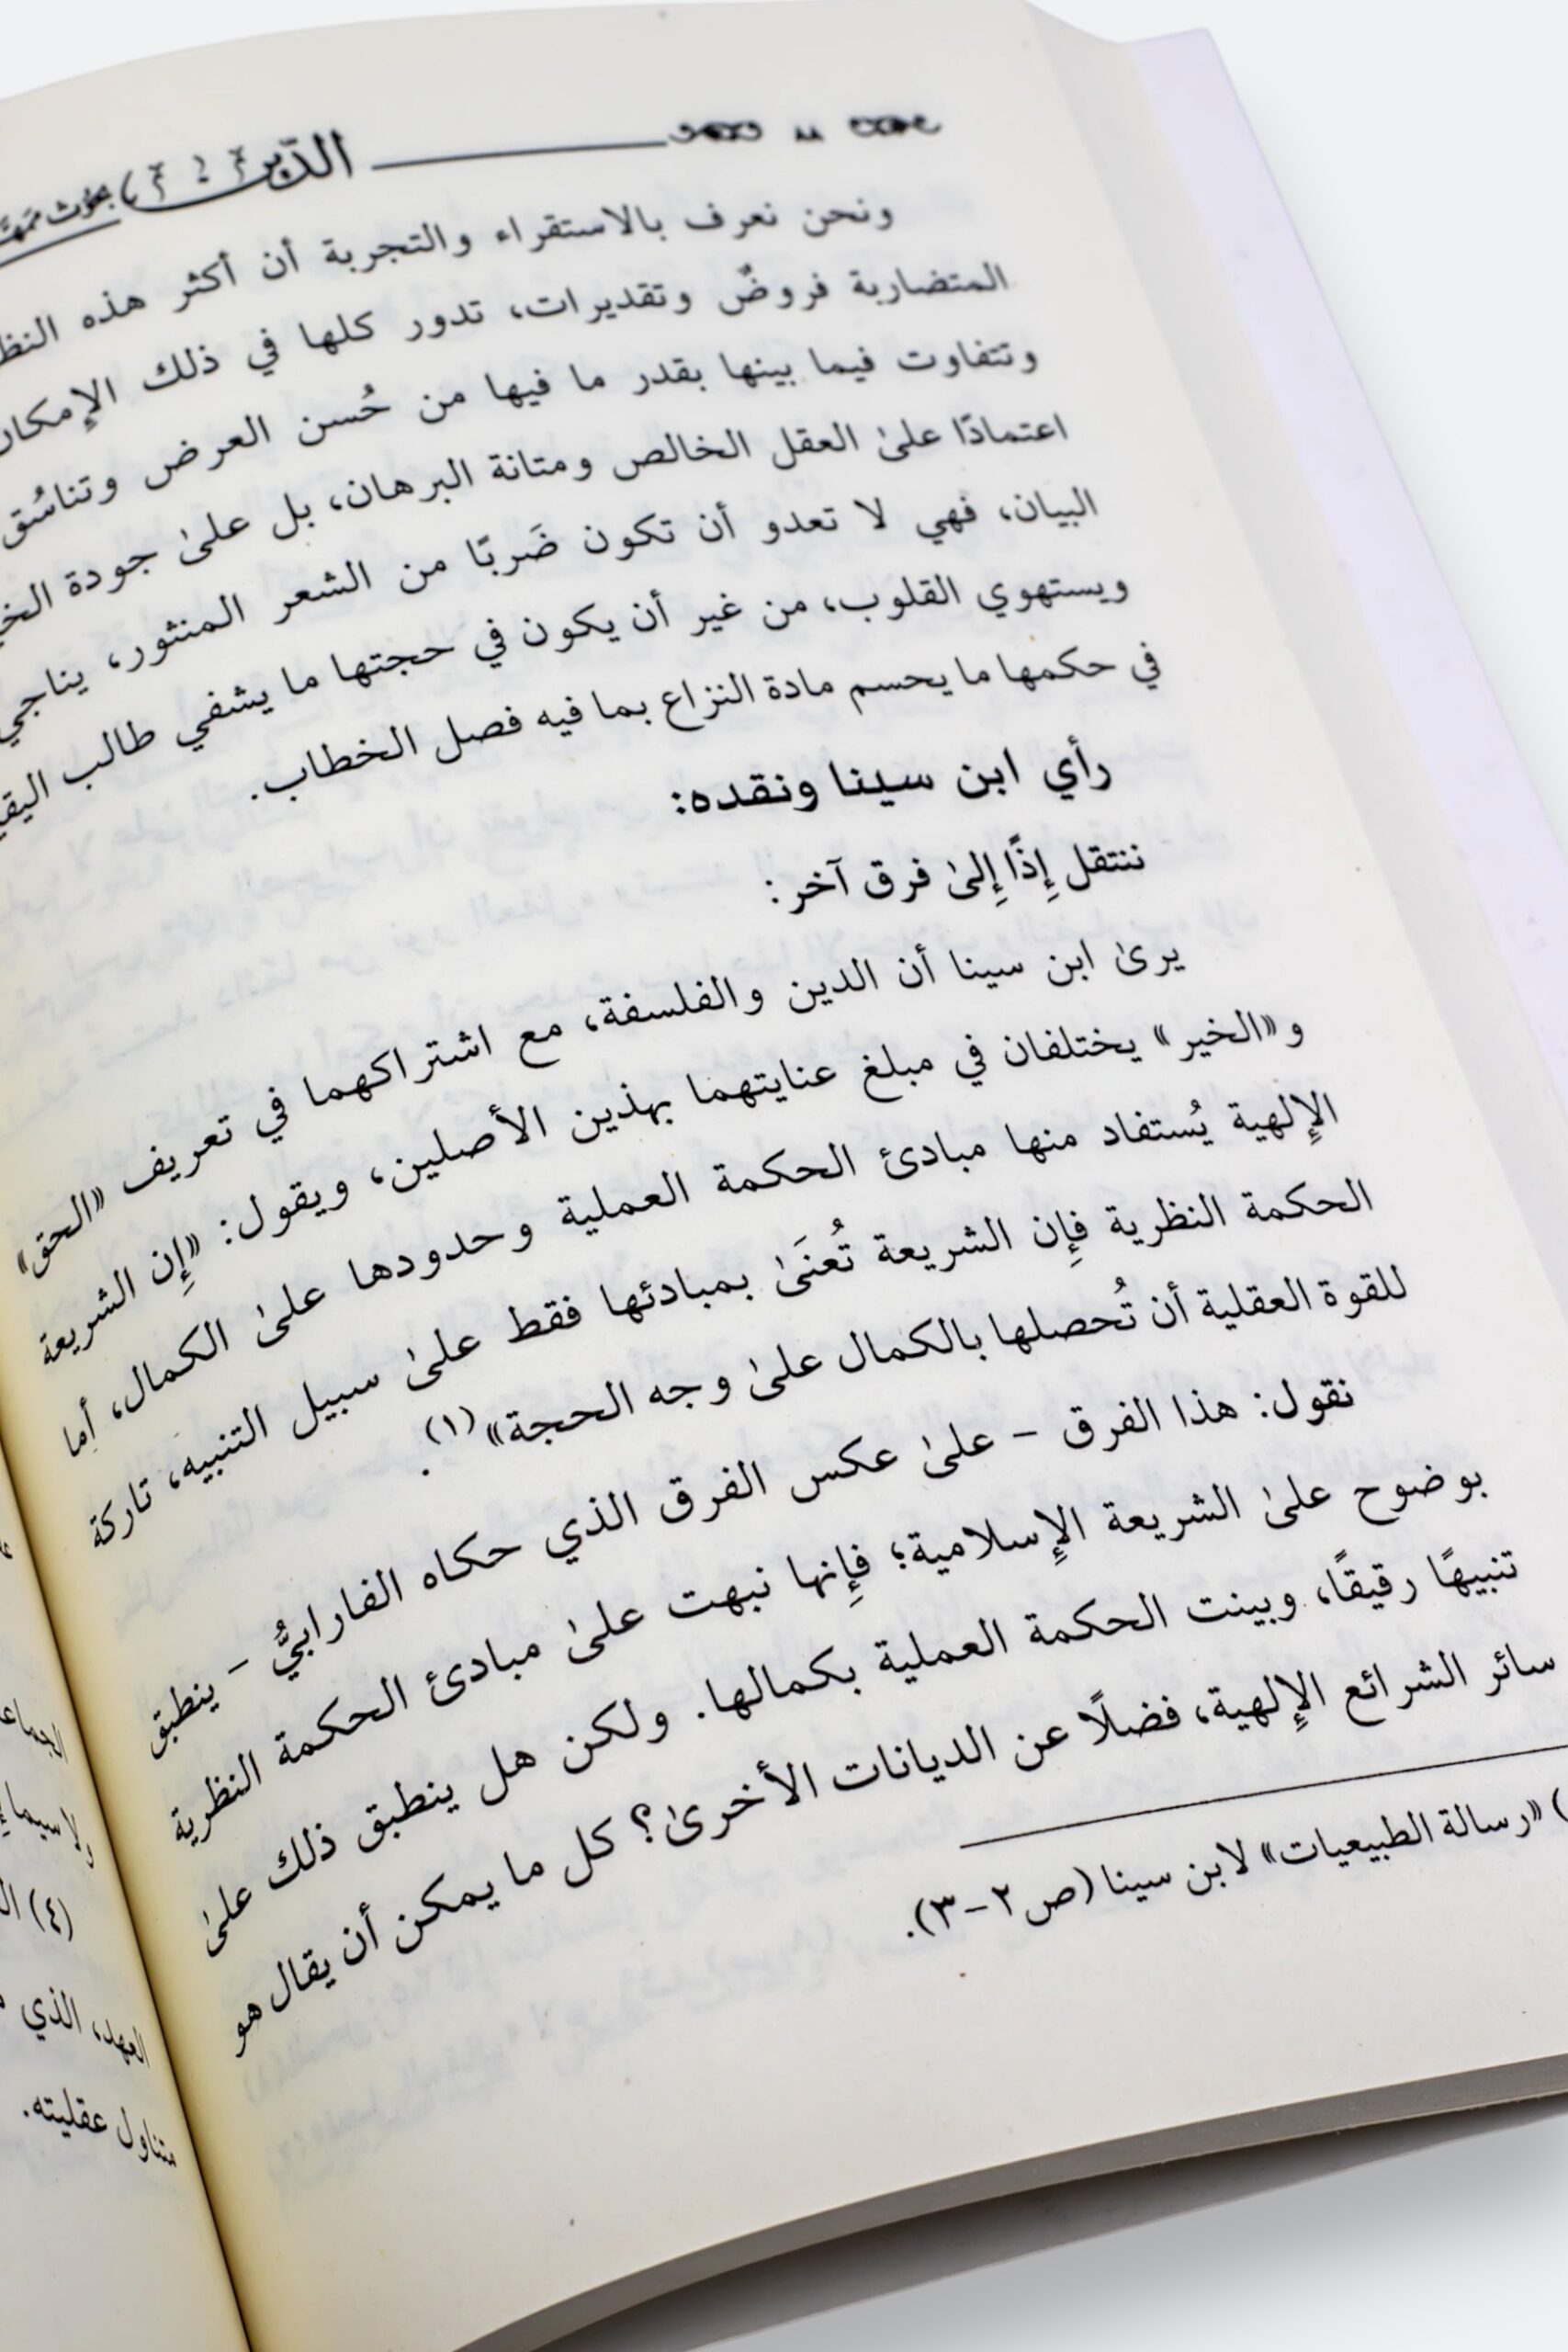 ٨٨ الدّين بحوث
ونحن نعرف بالاستقراء والتجربة أن أكثر هذه
المتضاربة فروضٌ وتقديرات، تدور كلها في ذلك
وتتفاوت فيما بينها بقدر ما فيها من حُسن العرض وتناسُق
اعتمادًا علىٰ العقل الخالص ومتانة البرهان، بل علىٰ جودة
البيان، فهي لا تعدو أن تكون ضَربًا من الشعر المنثور، يناجي
ويستهوي القلوب، من غير أن يكون في حجتها ما يشفي طالب
في حكمها ما يحسم مادة النزاع بما فيه فصل الخطاب.
رأي ابن سينا ونقده:
ننتقل إِذًا إِلىٰ فرق آخر:
يرىٰ ابن سينا أن الدين والفلسفة، مع اشتراكهما في تعريف «الحق»
و«الخير» يختلفان في مبلغ عنايتهما بهذين الأصلين، ويقول: «إِن الشريعة
الإِلهية يُستفاد منها مبادئ الحكمة العملية وحدودها علىٰ الكمال، أما
الحكمة النظرية فإِن الشريعة تُعنَىٰ بمبادئها فقط علىٰ سبيل التنبيه، تاركة
للقوة العقلية أن تُحصلها بالكمال علىٰ وجه الحجة»(١).
نقول: هذا الفرق – علىٰ عكس الفرق الذي حكاه الفارابيُّ – ينطبق
بوضوح علىٰ الشريعة الإِسلامية؛ فإِنها نبهت علىٰ مبادئ الحكمة النظرية
تنبيهًا رقيقًا، وبينت الحكمة العملية بكمالها. ولكن هل ينطبق ذلك علىٰ
سائر الشرائع الإِلهية، فضلًا عن الديانات الأخرىٰ؟ كل ما يمكن أن يقال هو
) «رسالة الطبيعيات» لابن سينا (ص ٢-٣).
ولا سيما
(٤)
العهد، الذي
متناول عقليته.